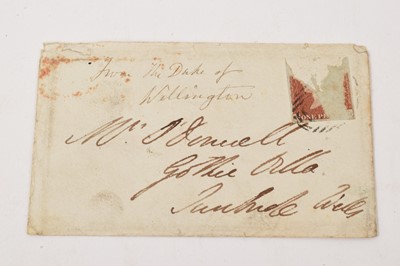 From The Duke of
Wellington
Mrs O'Donnell
Gothic Villa
Tunbridge Wells
ONE P